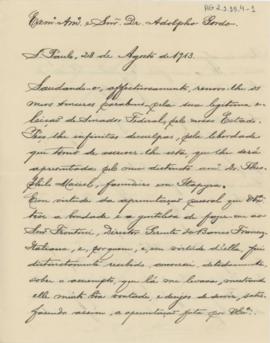 AG 2.3.33.4-1
Exmº Amº e Snr. Dr. Adolpho Gordo.
S. Paulo, 28 de Agosto de 1913.
Saudando-o, affectuosamente, renovo-lhe os
meus sinceros parabens, pela sua legitima e-
leição de Senador Federal, pelo nosso Estado.
Peço-lhe infinitas desculpas, pela liberdade
que tomo de escrever-lhe esta, que lhe será
apresentada pelo meu distincto amº Dr. Theo-
philo Maciel, fazendeiro em Itapyra.
Em virtude da apresentação pessoal que V. Ex.
teve a bondade e a gentileza de fazer-me ao
Snr. Frontini, Director Gerente do Banco Francez
Italiano, e, porquem, e, em virtude d'ella, fui
distinctamente recebido, conversei, detidamente
sobre o assumpto, que lá me levava, mostrando
elle muita boa vontade, e desejos de servir, satis-
fazendo assim, a apresentação feita por V. Ex.